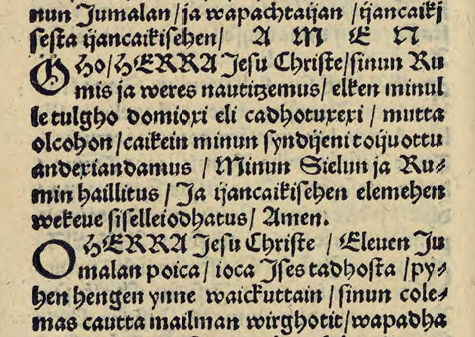 nun Jumalan/ja wapachtaijan/ijancaikj
sesta ijancaikisehen/ A M E N
OHO/HERRA Jesu Christe/sinun Ru
mis ja weres nautitzemus/elken minul
le tulgho domioxi eli cadhotuxexi/mutta
olcohon/caikein minun syndijeni toiuottu
andexiandamus/Minun Sielun ja Ru⸗
min haillitus/Ja ijancaikisehen elemehen
wekeue siselleiodhatus/Amen.
OHERRA Jesu Christe/Eleuen Ju
malan poica/ioca Ises tadhosta/py⸗
hen hengen ynne waickuttain/sinun cole⸗
mas cautta mailman wirghotit/wapadha